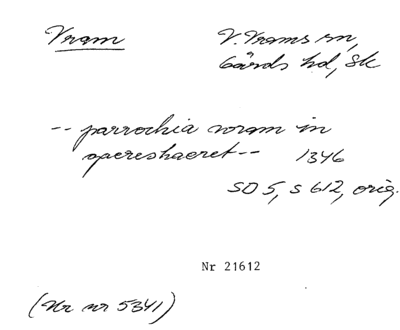 Vram
V. Vrams sn,
Gärds hd, Sk
-- parrochia wram in
opereshaeret -- 1346
SD 5, s 612, orig.
Nr 21612
(Nr nr 5341)